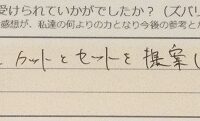 受けられていかがでしたか？（ズバリ
感想が、私達の何よりの力となり今後の参考と
カットとセットを提案し